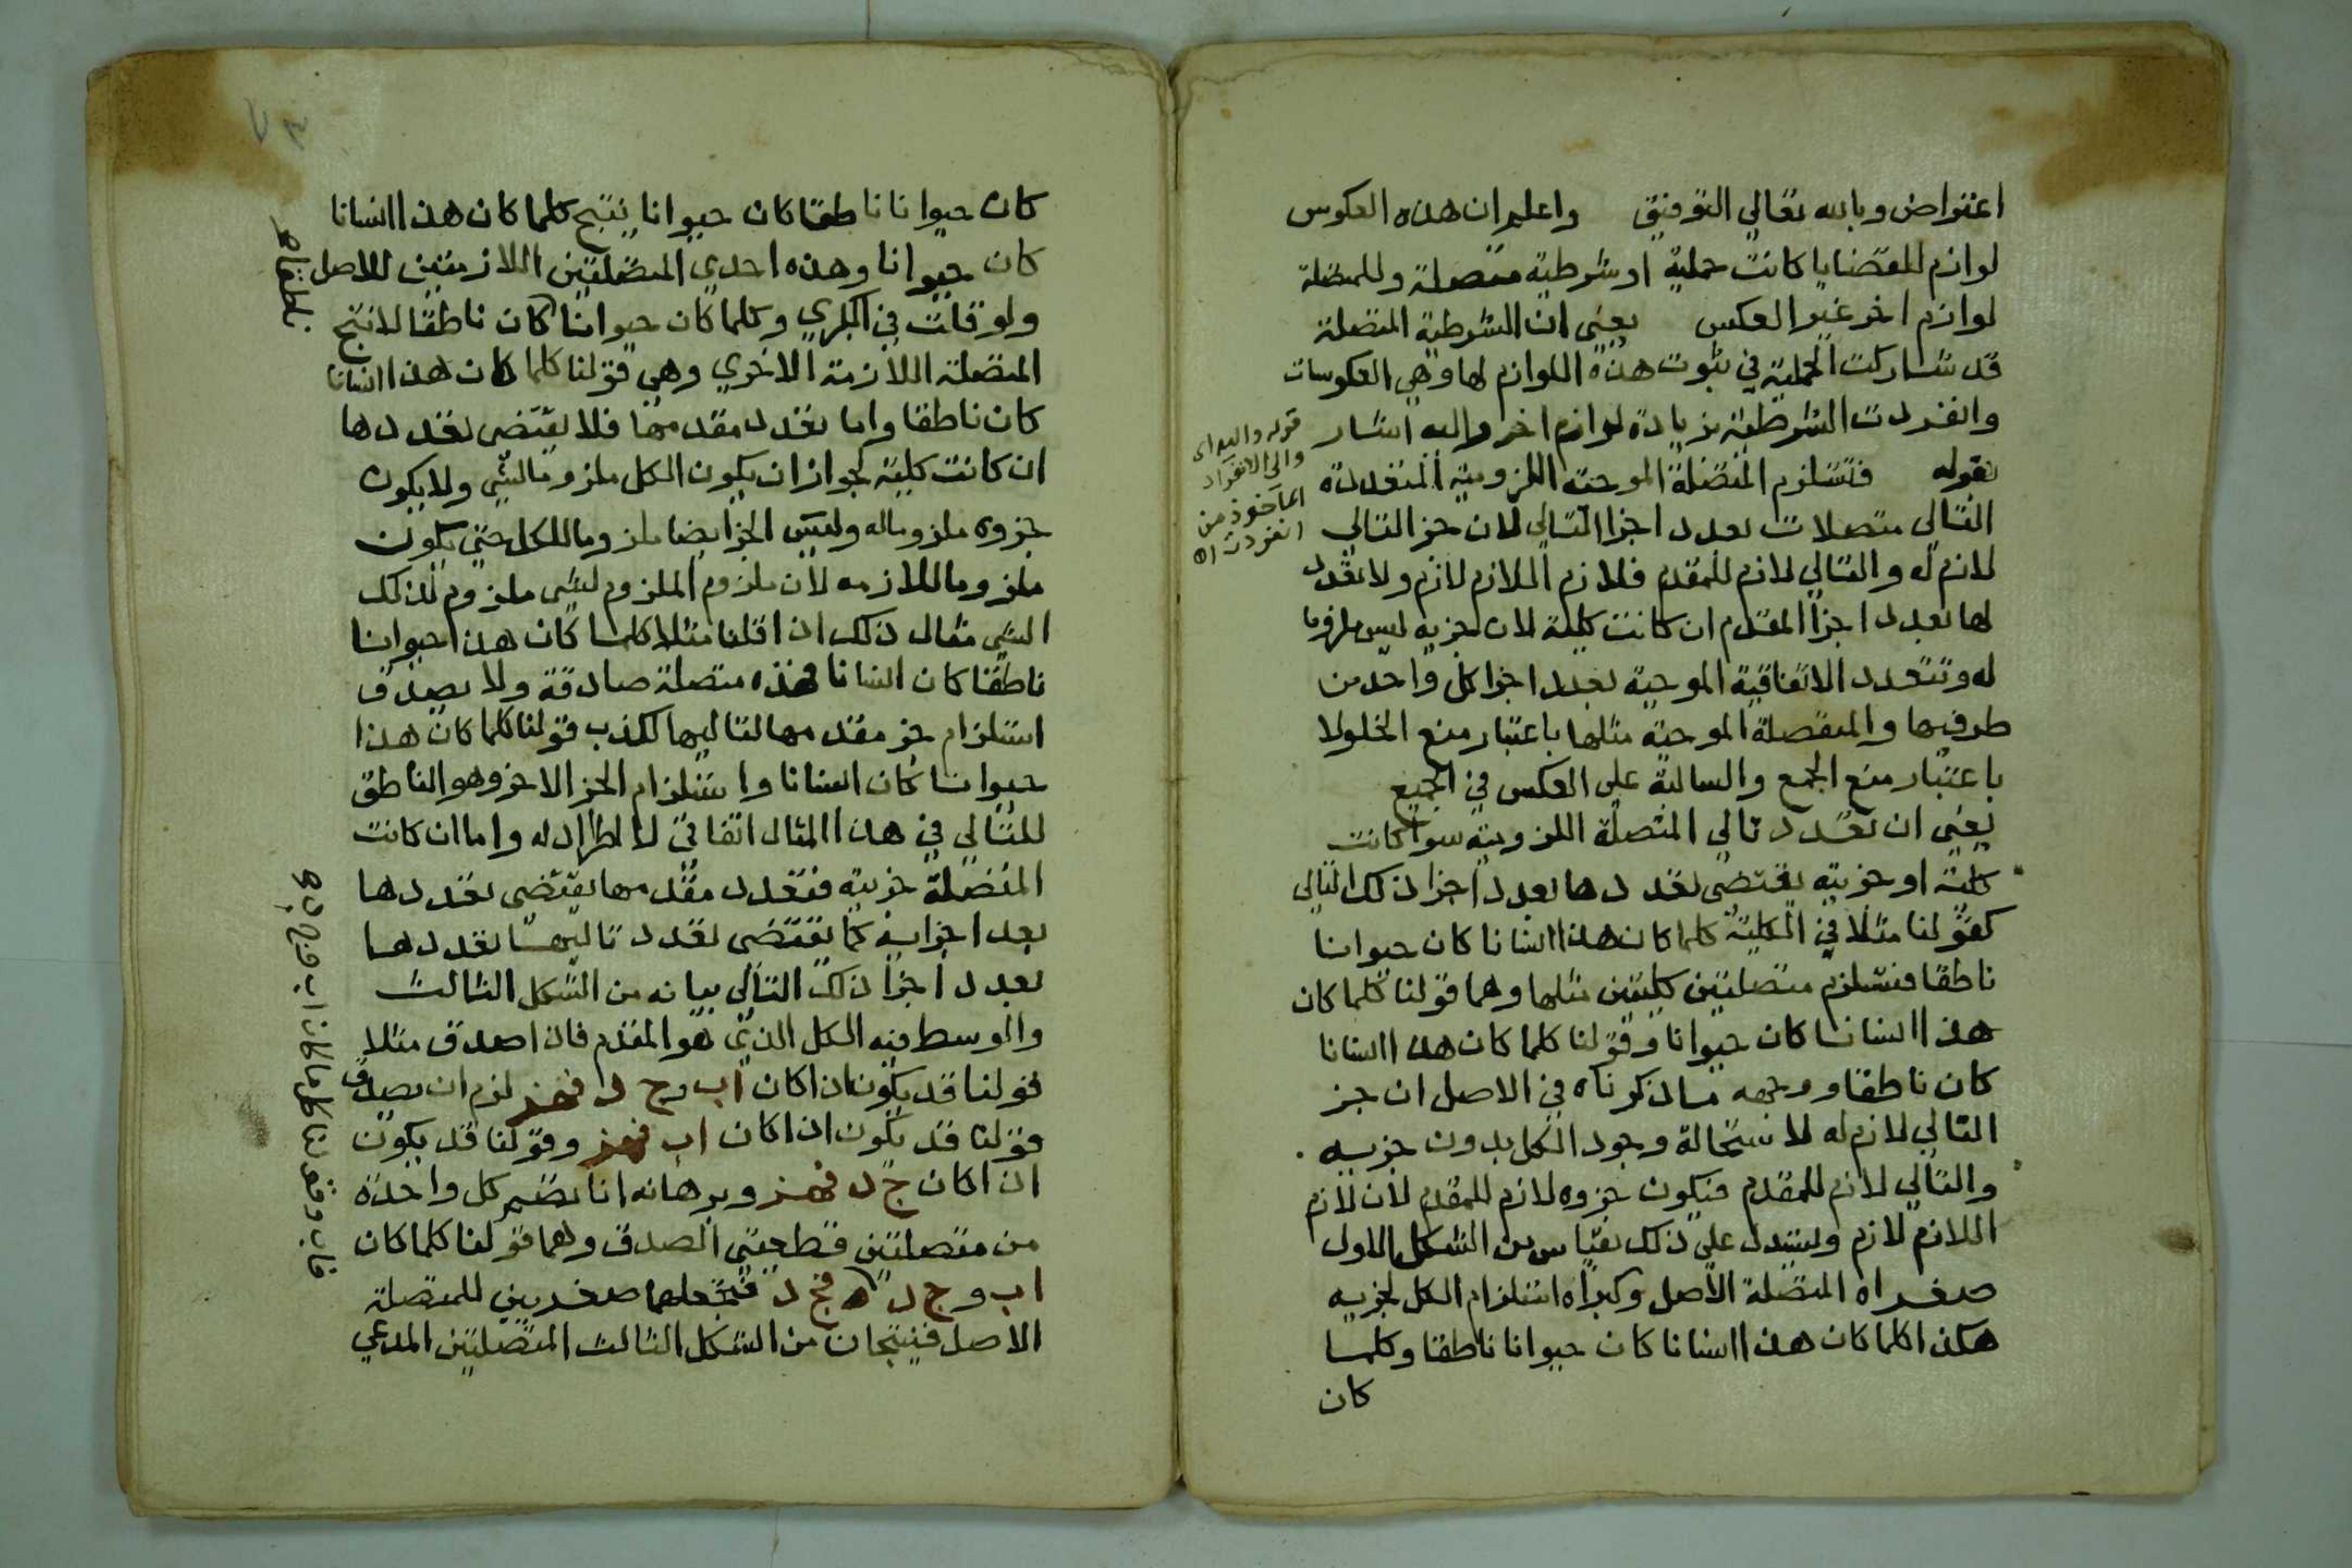 اعتراض وبالله تعالي التوفيق واعلم ان هذه العكوس
لوازم للقضايا كانت حملية او شرطية متصلة وللمتصلة
لوازم اخر غير العكس يعني ان الشرطية المتصلة
قد شاركت الحملية في ثبوت هذه اللوازم لها وهي العكوسات
وانفردت الشرطية بزيادة لوازم اخر واليه اشار
بقوله فتستلزم المتصلة الموجبة اللزومية المتعددة
التالي متصلات بعدد اجزا التالي لان جز التالي
لازم له والتالي لازم للمقدم فلازم اللازم لازم ولا تعدد
لها بعدد اجزا المقدم ان كانت كلية لان جزيه ليس ملزوما
له وتتعدد الاتفاقية الموجبة بعدد اجزا كل واحد من
طرفيها والمنفصلة الموجبة مثلها باعتبار منع الخلو لا
باعتبار منع الجمع والسالبة علي العكس في الجميع
يعني ان تعدد تالي المتصلة اللزومية سوا كانت
كلية او جزيية يقتضي تعددها بعدد اجزا ذلك التالي
كقولنا مثلا في الكلية كلما كان هذا انسانا كان حيوانا
ناطقا فتستلزم متصلتين كليتين مثلها وهما قولنا كلما كان
هذا انسانا كان حيوانا وقولنا كلما كان هذا انسانا
كان ناطقا ووجهه ما ذكرناه في الاصل ان جز
التالي لازم له لاستحالة وجود الكل بدون جزيه
والتالي لازم للمقدم فيكون جزوه لازم للمقدم لان لازم
اللازم لازم ويستدل علي ذلك بقياس من الشكل الاول
صغراه المتصلة الاصل وكبراه استلزام الكل لجزيه
هكذا كلما كان هذا انسانا كان حيوانا ناطقا وكلما
كان
قوله واليه اي
والي الانفراد
الماخوذ من
انفردت اه
كان حيوانا ناطقا كان حيوانا ينتج كلما كان هذا انسانا
كان حيوانا وهذه احدي المتصلتين اللازمتين للاصل
ولو قلت في الكبري وكلما كان حيوانا كان ناطقا لانتج
المتصلة اللازمة الاخري وهي قولنا كلما كان هذا انسانا
كان ناطقا واما تعدد مقدمها فلا يقتضي تعددها
ان كانت كلية لجواز ان يكون الكل ملزوما لشي ولا يكون
جزوه ملزوما له وليس الجز ايضا ملزوما للكل حتي يكون
ملزوما للازمه لان ملزوم الملزوم لشي ملزوم لذلك
الشي مثال ذلك اذا قلنا مثلا كلما كان هذا حيوانا
ناطقا كان انسانا فهذه متصلة صادقة ولا يصدق
استلزام جز مقدمها لتاليها لكذب قولنا كلما كان هذا
حيوانا كان انسانا واستلزام الجز الاخر وهو الناطق
للتالي في هذا المثال اتفاقي لا اطراد له واما ان كانت
المتصلة جزيية فتعدد مقدمها يقتضي تعددها
بعدد اجزايه كما يقتضي تعدد تاليها تعددها
بعدد اجزا ذلك التالي بيانه من الشكل الثالث
والوسط فيه الكل الذي هو المقدم فاذا صدق مثلا
قولنا قد يكون اذا كان اب وج د فهز لزم ان يصدق
قولنا قد يكون اذا كان اب فهز وقولنا قد يكون
اذا كان ج د فهز وبرهانه انا نضم كل واحدة
من متصلتين قطعيتي الصدق وهما قولنا كلما كان
اب وج د فج د فنجعلهما صغريين للمتصلة
الاصل فينتجان من الشكل الثالث المتصلتين المدعي